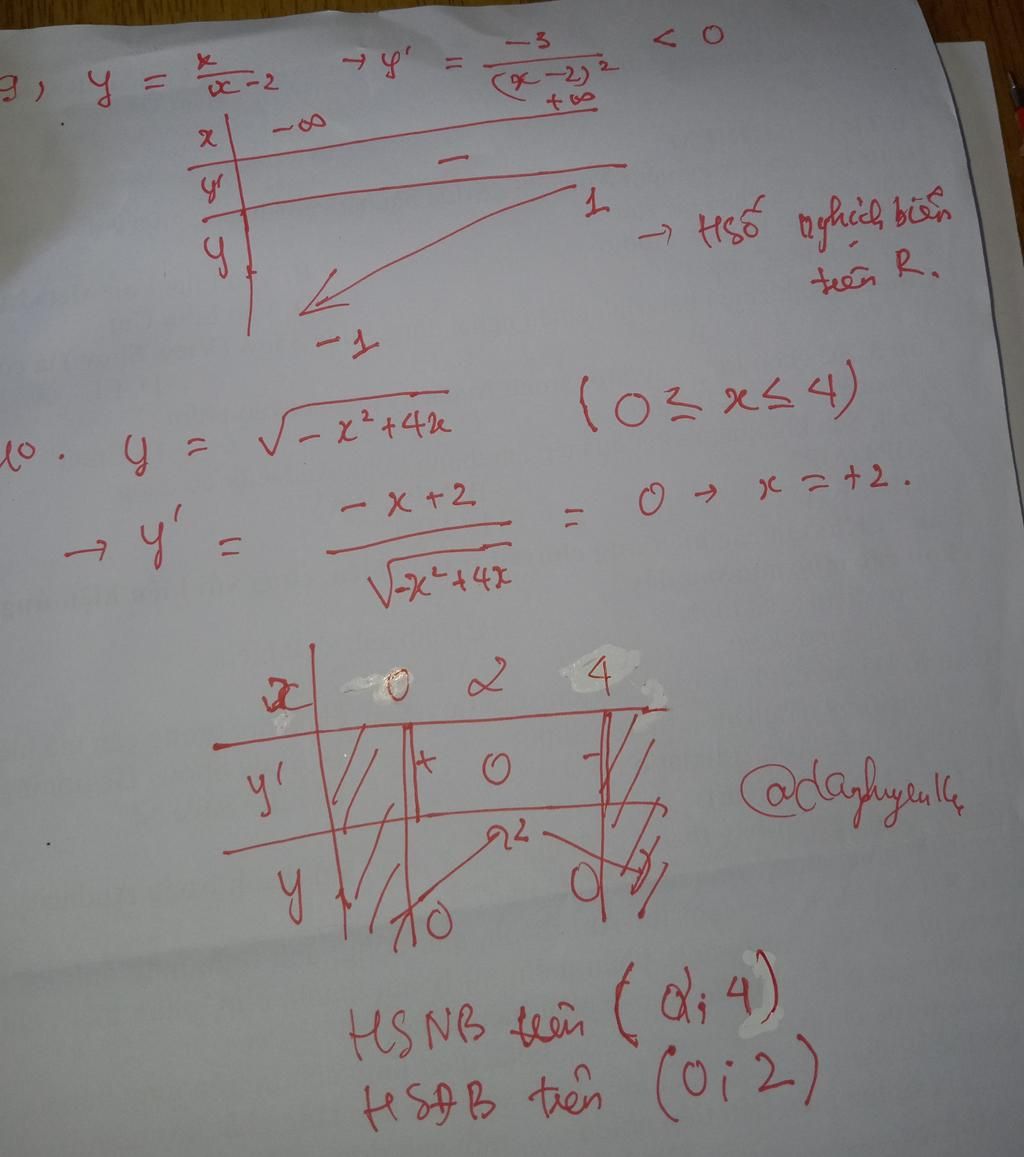 9, y = x/(x-2) → y' = -3/(x-2)² < 0
x -∞ +∞
y' -
y 1
-1
→ HSố nghịch biến
trên R.
10. y = √(-x²+4x) (0 ≤ x ≤ 4)
→ y' = (-x+2)/√(-x²+4x) = 0 → x = +2.
x 0 2 4
y' + 0 -
y 0 2 0
HSNB trên ( 2; 4)
HSĐB trên (0; 2)